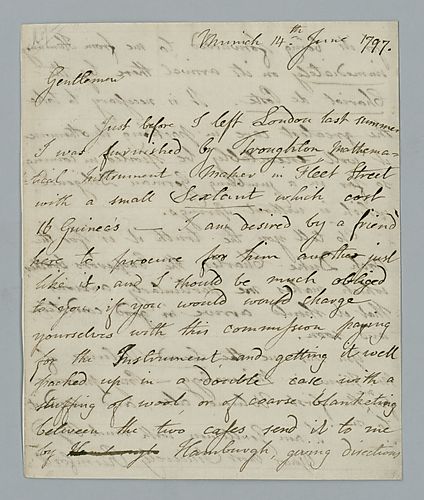 Munich 14.th June 1797.
Gentlemen
Just before I left London last summer
I was furnished by Troughton Mathema-
tical Instrument Maker in Fleet Street
with a small Sextant which cost
16 Guineas — I am desired by a friend
here to procure for him another just
like it, and I should be much obliged
to you if you would would charge
yourselves with this commission paying
for the Instrument, and getting it well
packed up in a double case with a
stuffing of wool or of coarse blanketing
between the two cases send it to me
by Hamburgh, giving directions